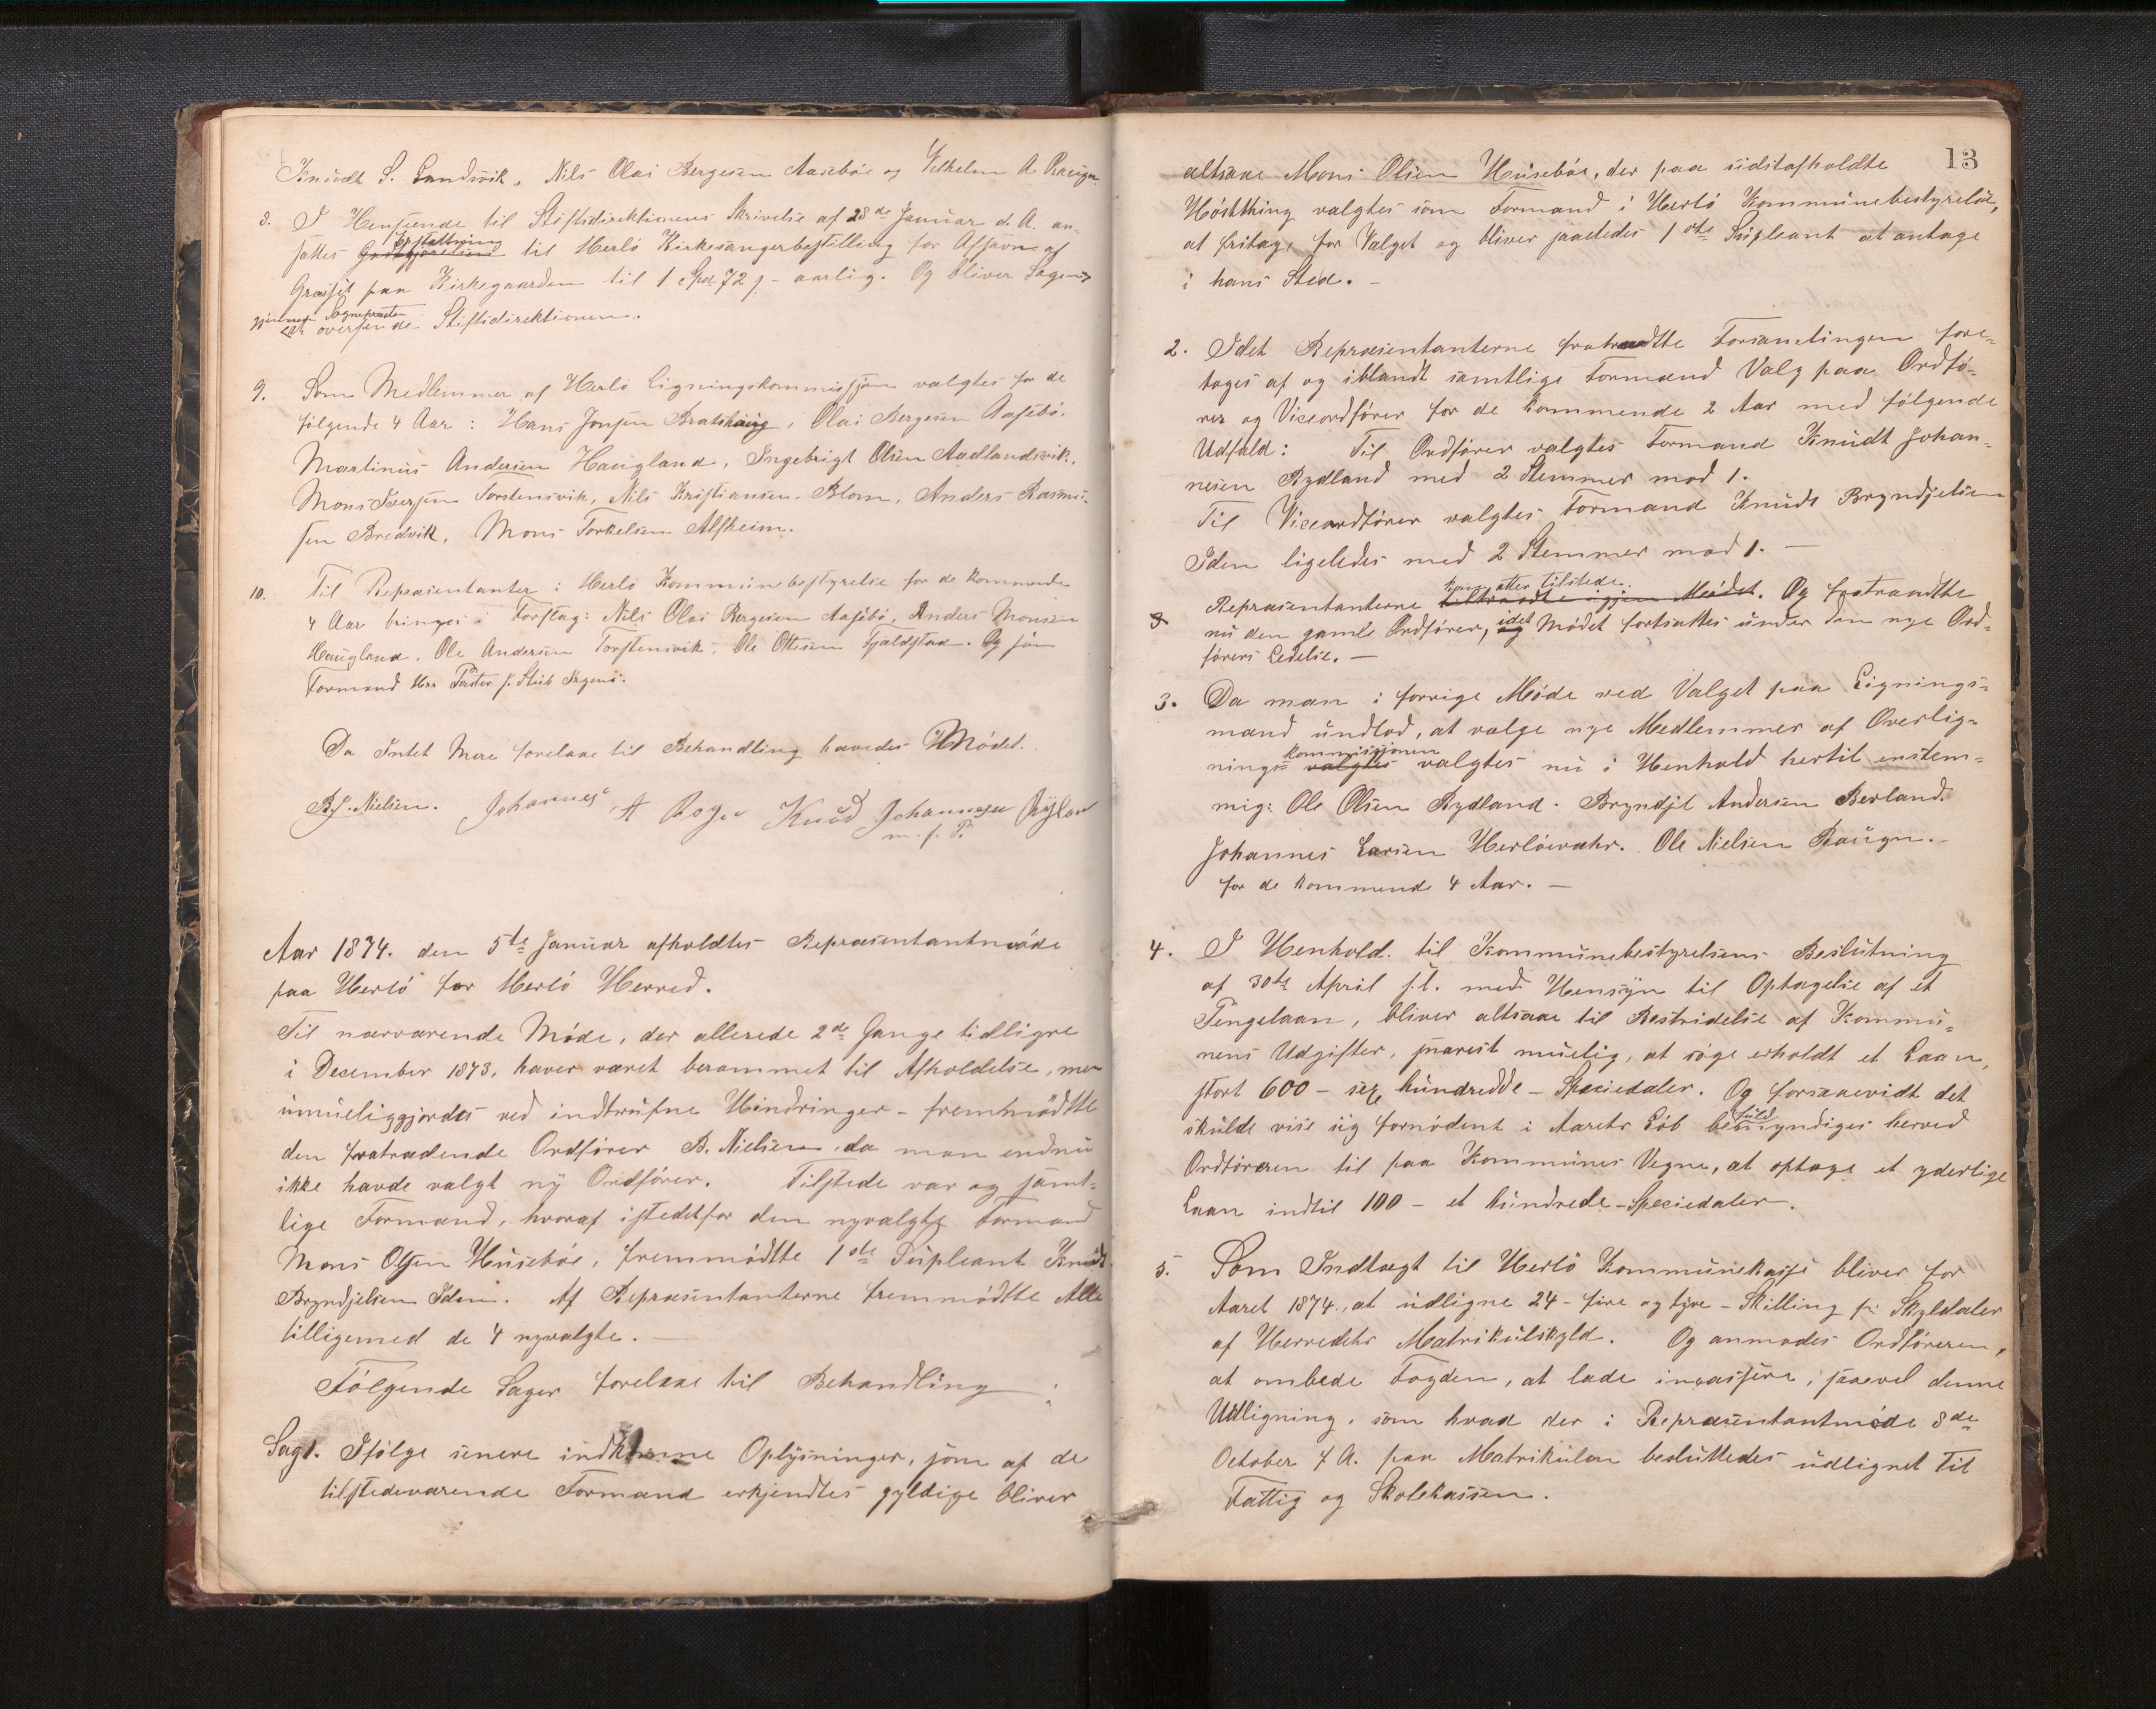 Knudt S. Landsvik, Nils Olai Bergesen Aasebøe og Vilhelm A Raugn.
8. I Henseende til Stiftsdirektionens Skrivelse af 28de Januar d. A. an-
sattes Erstattning til Herlö Kirkesangerbestilling for Afsavn af
Græsset paa Kirkegaarden til 1 Spd 72 s - aarlig. Og bliver Sagen
gjennem Sognepresten
at oversende Stiftsdirektionen.
9. Som Medlemmer af Herlö Ligningskommission valgtes for de
følgende 4 Aar: Hans Jonsen Bratshaug, Olai Bergesen Aasebö.
Martinus Andersen Haugland, Ingebrigt Olsen Aadlandsvik,
Mons Iversen Torstensvik, Nils Kristiansen Blom, Anders Rasmu-
sen Bredvik, Mons Torkelsen Alfheim.
10. Til Repræsentanter i Herlö Kommunebestyrelse for de kommende
4 Aar bringes i Forslag: Nils Olai Bergesen Aasebö, Anders Monsen
Haugland, Ole Andersen Torstensvik, Ole Ottesen Fjeldstad. Og som
Formand Herr Pastor J. Stub Irgens.
Da Intet Mere forelaae til Behandling hævedes Mödet.
B. J. Nielsen. Johannes A Rogn Knud Johannesen Rylan
m. f. P.
Aar 1874. den 5te Januar afholdtes Repræsentantmöde
paa Herlö for Herlö Herred.
Til nærværende Möde, der allerede 2de Gange tidligre
i December 1873, haver været berammet til Afholdelse, men
umueliggjordes ved indtrufne Hindringer - fremmödtte
den fratrædende Ordförer B. Nielsen, da man endnu
ikke havde valgt ny Ordförer. Tilstede var og samt-
lige Formænd, hvoraf istedetfor den nyvalgte Formand
Mons Olsen Husebøe, fremmödtte 1ste Supleant Knudt
Bryndjelsen Iden. Af Repræsentanterne fremmödtte Alle
tilligemed de 4 nyvalgte. —
Følgende Sager forelaae til Behandling:
Sag 1. Ifölge senere indkomne Oplysninger, som af de
tilstedeværende Formænd erkjendtes gyldige bliver
13
altsaae Mons Olsen Husebøe, der paa sidstafholdte
Høstthing valgtes som Formand i Herlö Kommunebestyrelse,
at fritage for Valget og bliver saaledes 1ste Supleant at antage
i hans Sted. -
2. Idet Repræsentanterne fratraadtte Forsamlingen fore-
toges af og iblandt samtlige Formænd Valg paa Ordfö-
rer og Viceordförer for de kommende 2 Aar med fölgende
Udfald: Til Ordförer valgtes Formand Knudt Johan-
nesen Rydland med 2 Stemmer mod 1.
Til Viceordförer valgtes Formand Knudt Bryndjelsen
Iden ligeledes med 2 Stemmer mod 1. —
kom atter tilstede.
Repræsentanterne tiltraadte igjen Mødet. Og fratraadtte
3 nu den gamle Ordförer, idet Mödet fortsattes under den nye Ord-
förers Ledelse. —
3. Da man i forrige Möde ved Valget paa Lignings-
mænd undlod, at valge nye Medlemmer af Overlig-
kommissionen
nings- valgtes valgtes nu i Henhold hertil enstem-
mig: Ole Olsen Rydland. Bryndjel Andersen Berland.
Johannes Larsen Herlöevæhr. Ole Nielsen Raugn. -
for de kommende 4 Aar. —
4. I Henhold til Kommunebestyrelsens Beslutning
af 30te April f.l. med Hensyn til Optagelse af et
Pengelaan, bliver altsaae til Bestridelse af Kommu-
nens Udgifter, snarest muelig, at söge erholdt et Laan,
stort 600 - sex hundredde - Speciedaler. Og forsaavidt det
skulde vise sig fornödent i Aarets Löb befuldmyndiges herved
Ordföreren til paa Kommunes Vegne, at optage et yderlige
Laan indtil 100 - et hundrede - Speciedaler.
5. Som Indtægt til Herlö Kommunekasse bliver for
Aaret 1874, at udligne 24 - fire og tyve - Skilling pr Skylddaler
af Herredets Matrikulskyld. Og anmodes Ordföreren,
at ombede Fogden, at lade incassere, saavel denne
Udligning, som hvad der i Repræsentantmöde 8de
October f A. paa Matrikulen besluttedes udlignet til
Fattig og Skolekassen.